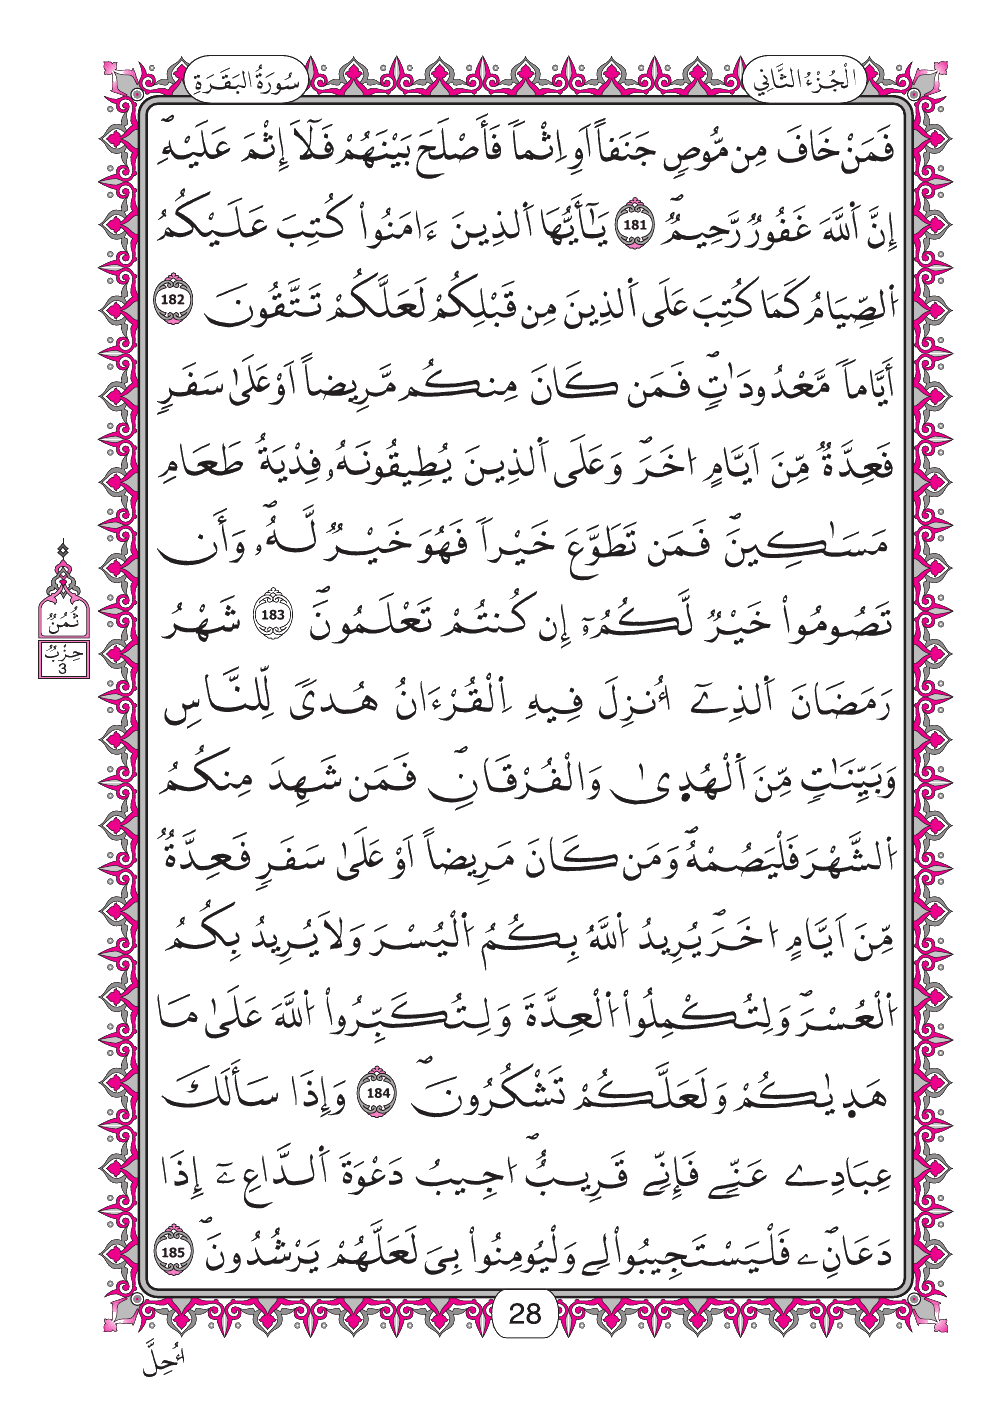 الْجُزْءُ الثَّانِي
سُورَةُ البَقَرَةِ
فَمَنْ خَافَ مِن مُّوصٍ جَنَفاً اَوِ اِثْماً فَأَصْلَحَ بَيْنَهُمْ فَلَآ إِثْمَ عَلَيْهِۖ
إِنَّ اَللَّهَ غَفُورٌ رَّحِيمٌۖ 181 يَٰٓأَيُّهَا اَلذِينَ ءَامَنُواْ كُتِبَ عَلَيْكُمُ
اُلصِّيَامُ كَمَا كُتِبَ عَلَى اَلذِينَ مِن قَبْلِكُمْ لَعَلَّكُمْ تَتَّقُونَ 182
أَيَّاماً مَّعْدُودَٰتٖۖ فَمَن كَانَ مِنكُم مَّرِيضاً اَوْ عَلَىٰ سَفَرٖ
فَعِدَّةٌ مِّنَ اَيَّامٍ اُخَرَۖ وَعَلَى اَلذِينَ يُطِيقُونَهُۥ فِدْيَةُ طَعَامِ
مَسَٰكِينَۖ فَمَن تَطَوَّعَ خَيْراً فَهُوَ خَيْرٌ لَّهُۥۖ وَأَن
تَصُومُواْ خَيْرٌ لَّكُمُۥٓ إِن كُنتُمْ تَعْلَمُونَۖ 183 شَهْرُ
رَمَضَانَ اَلذِےٓ أُنزِلَ فِيهِ اِلْقُرْءَانُ هُدىً لِّلنَّاسِ
وَبَيِّنَٰتٖ مِّنَ اَلْهُدٜىٰ وَالْفُرْقَانِۖ فَمَن شَهِدَ مِنكُمُ
اُلشَّهْرَ فَلْيَصُمْهُۖ وَمَن كَانَ مَرِيضاً اَوْ عَلَىٰ سَفَرٖ فَعِدَّةٌ
مِّنَ اَيَّامٍ اُخَرَۖ يُرِيدُ اُللَّهُ بِكُمُ اُلْيُسْرَ وَلاَ يُرِيدُ بِكُمُ
اُلْعُسْرَۖ وَلِتُكْمِلُواْ اُلْعِدَّةَ وَلِتُكَبِّرُواْ اُللَّهَ عَلَىٰ مَا
هَدٜيٰكُمْ وَلَعَلَّكُمْ تَشْكُرُونَۖ 184 وَإِذَا سَأَلَكَ
عِبَادِے عَنِّے فَإِنِّے قَرِيبٌۖ اُجِيبُ دَعْوَةَ اَلدَّاعِۦٓ إِذَا
دَعَانِۦۖ فَلْيَسْتَجِيبُواْ لِے وَلْيُومِنُواْ بِيَ لَعَلَّهُمْ يَرْشُدُونَۖ 185
ثُمُنٌ
حِزْبٌ
3
28
أُحِلَّ